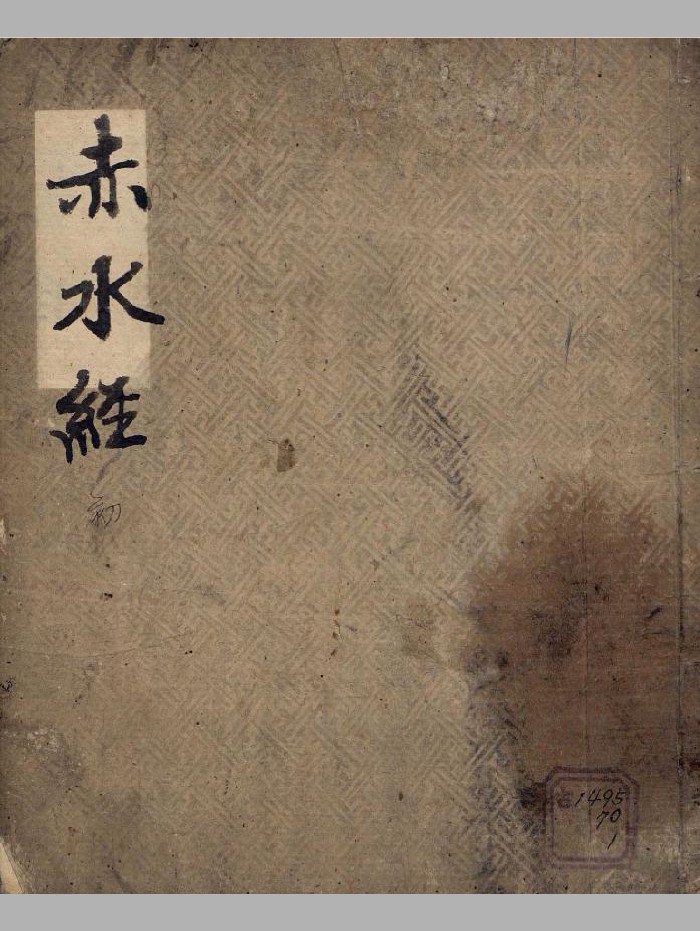 赤水經
初
古1495
70
1